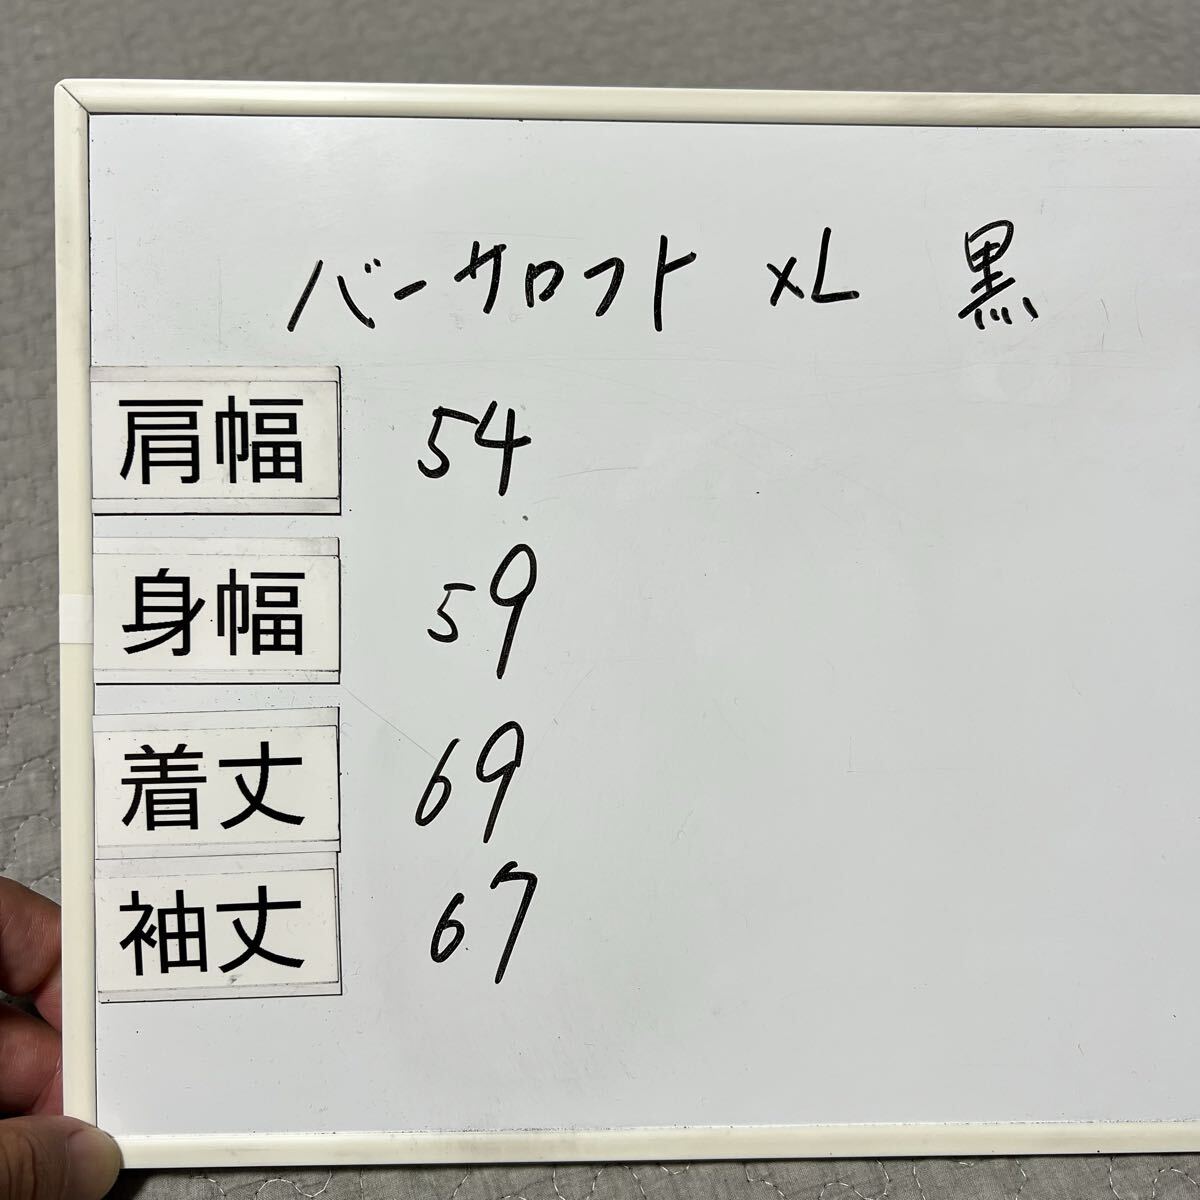 バーサロフト XL 黒
肩幅 54
身幅 59
着丈 69
袖丈 67